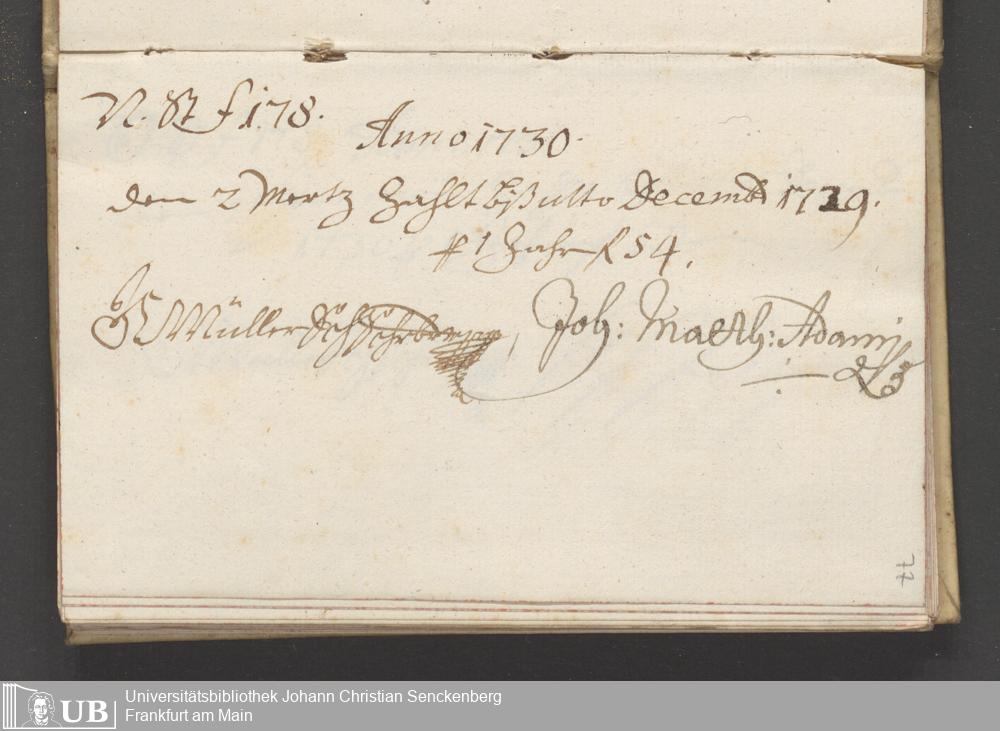 N. St f 178.
Anno 1730.
den 2 Mertz Zahlt biß ulto Decembr 1729.
1 Jahr f 54.
Müller
Joh: Math: Adami
77
Universitätsbibliothek Johann Christian Senckenberg
Frankfurt am Main
UB